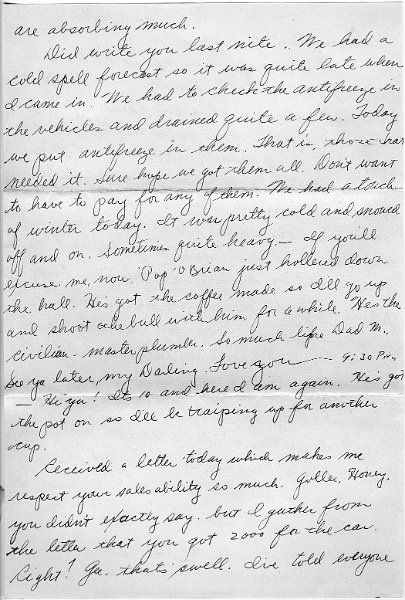 are absorbing much.
Did write you last nite. We had a
cold spell forecast so it was quite late when
I came in. We had to check the antifreeze in
the vehicles and drained quite a few. Today
we put antifreeze in them. That is, those that
needed it. Sure hope we got them all. Don't want
to have to pay for any of them. We had a touch
of winter today. It was pretty cold and snowed
off and on. Sometimes quite heavy. — If you'll
excuse me, now. 'Pop' O'Brian just hollered down
the hall. He's got the coffee made so I'll go up
and shoot the bull with him for a while. He's the
civilian master plumber. So much like Dad M.
See ya later, my Darling. Love you — 9:30 P.M.
— Hi ya! Its 10 and here I am again. He's got
the pot on so I'll be traiping up for another
cup.
Received a letter today which makes me
respect your sales ability so much. Gollee, Honey,
you didn't exactly say, but I gather from
the letter that you got 2000 for the car.
Right? Gee, that's swell. I've told everyone